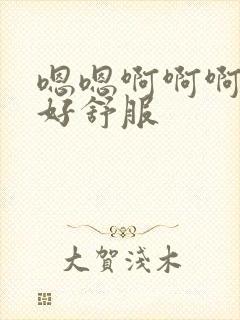 嗯嗯啊啊啊
好舒服
大賀浅木